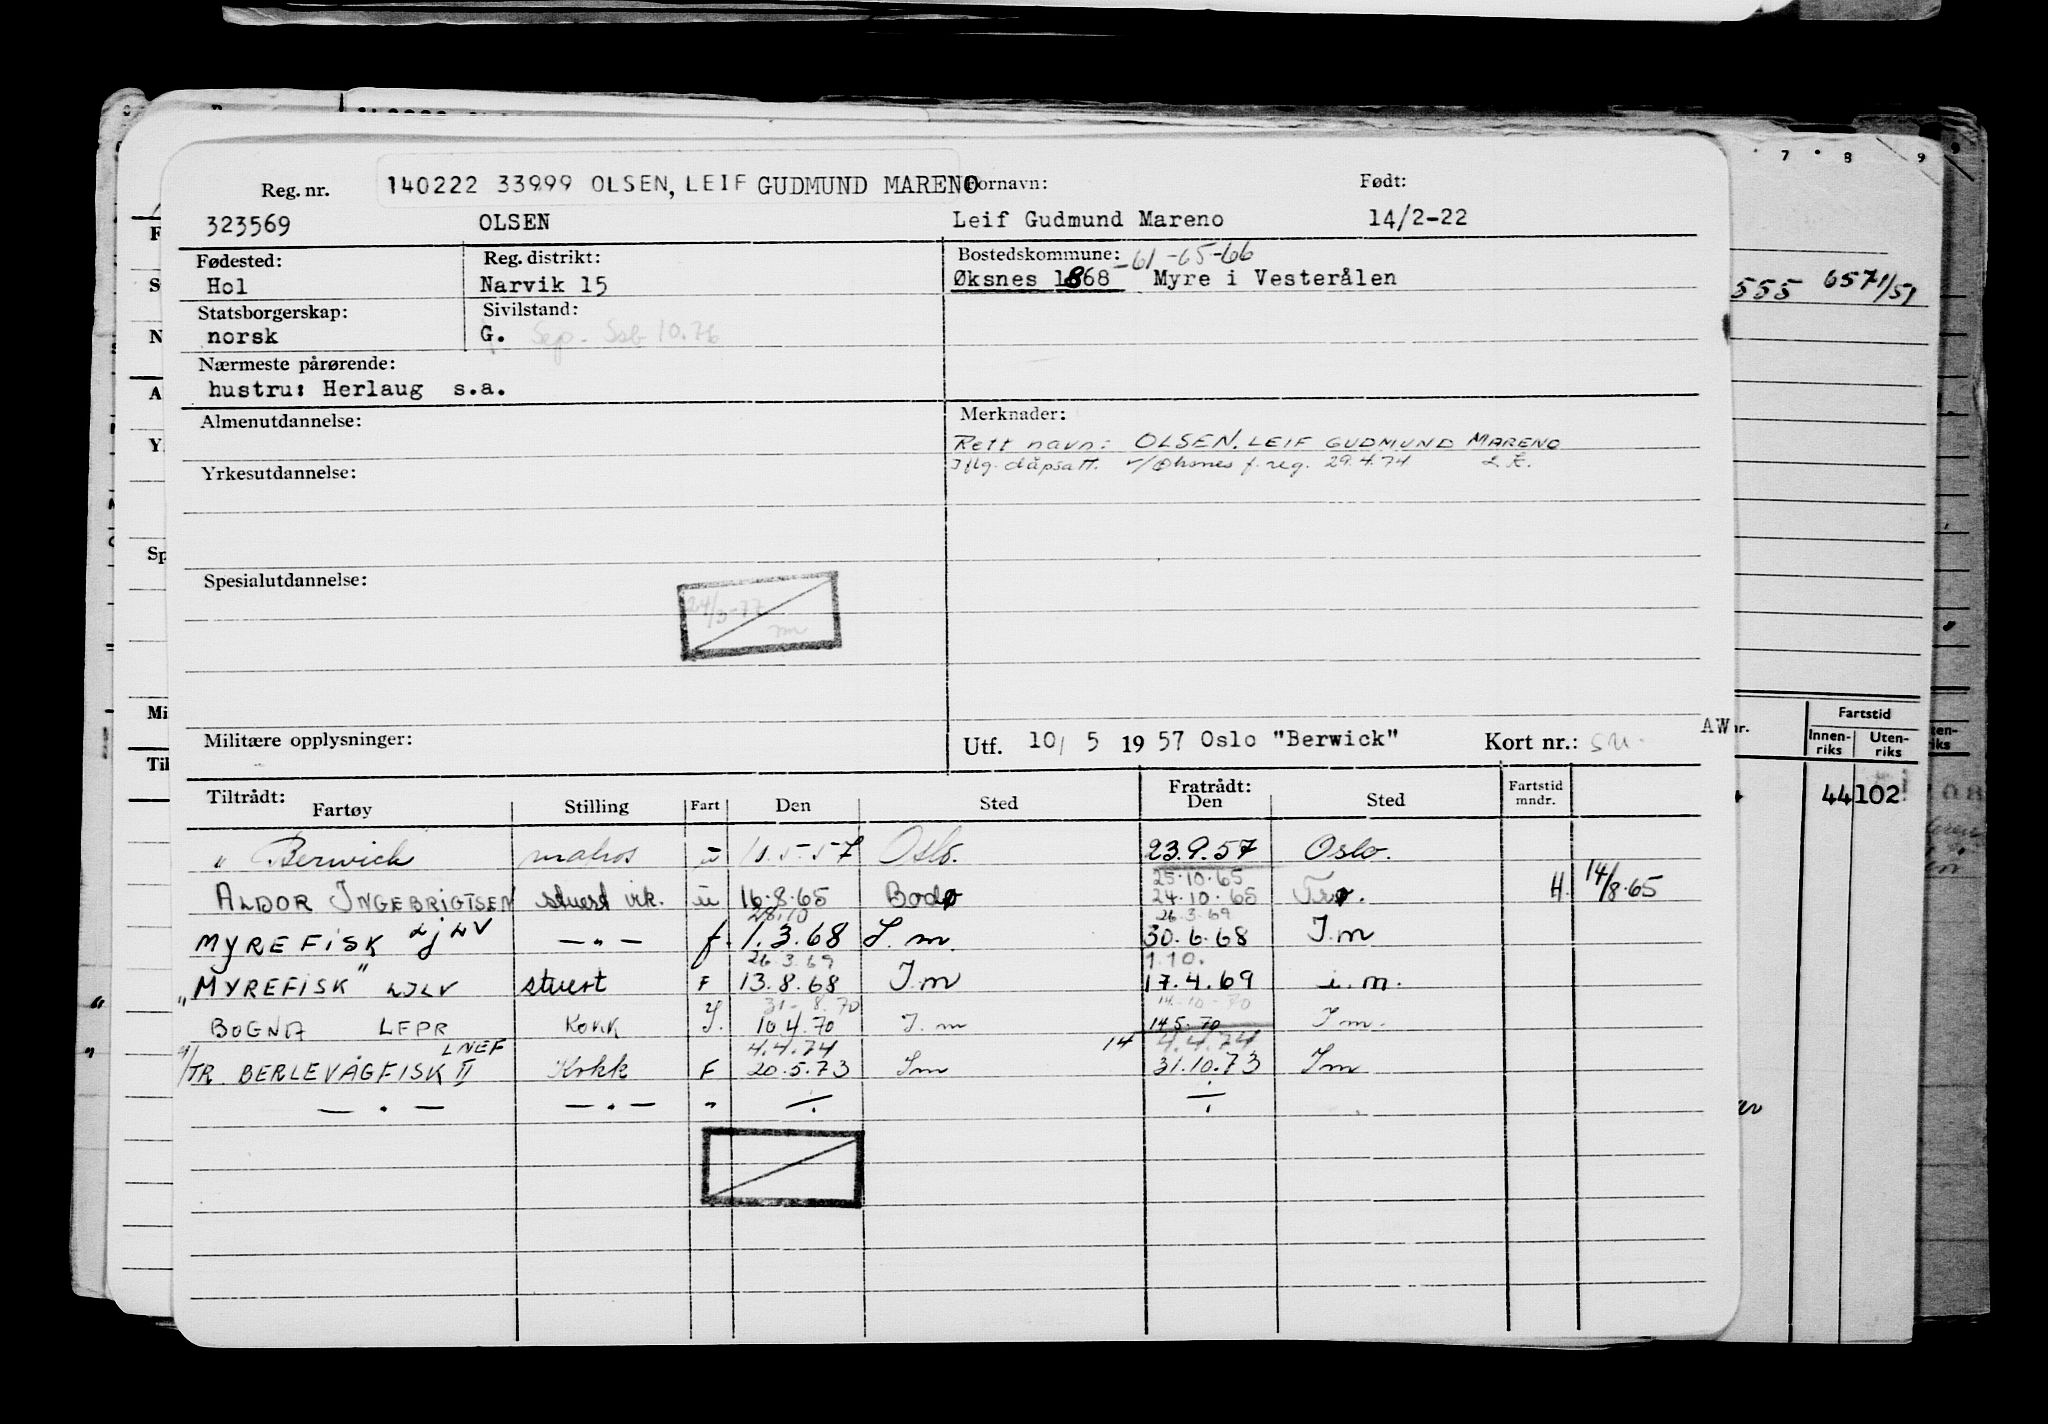 Reg. nr. 140222 33999 OLSEN, LEIF GUDMUND MARENO Fornavn: Født:
323569 OLSEN Leif Gudmund Mareno 14/2-22
Fødested: Reg. distrikt: Bostedskommune: -61-65-66
Hol Narvik 15 Øksnes 1868 Myre i Vesterålen
Statsborgerskap: Sivilstand:
norsk G. Sep. Ssb 10.76
Nærmeste pårørende:
hustru: Herlaug s.a.
Almenutdannelse: Merknader:
Rett navn: OLSEN. LEIF GUDMUND MARENO
Iflg. dåpsatt. v/Øksnes f. reg. 29.4.74
Yrkesutdannelse:
Spesialutdannelse:
24/3-77
Militære opplysninger: Utf. 10/ 5 19 57 Oslo "Berwick" Kort nr.:
Tiltrådt: Fratrådt: Fartstid
Fartøy Stilling Fart Den Sted Den Sted mndr.
" Berwick matros u 10.5.57 Oslo. 23.9.57 Oslo.
25.10.65
ALDOR INGEBRIGTSEN stuert vik. u 16.8.65 Bodø 24.10.65 Trø. H. 14/8.65
28.10 26.3.69
MYREFISK LJLV — " — f. 1.3.68 I.m. 30.6.68 I.m
26.3.69 1.10.
"MYREFISK" LJLV stuert F 13.8.68 I.m 17.4.69 i.m.
31.8.70 14.10.70
BOGNA LFPR Kokk F. 10.4.70 I.m 14.5.70 I m.
LNEF 4.4.74 14 4.4.74
TR. BERLEVÅGFISK II Kokk F 20.5.73 Im 31.10.73 Im
— " — — " — " ÷ ÷
7 8 9
555 6571/51
AW nr.
Fartstid
Innenriks Utenriks
44 102